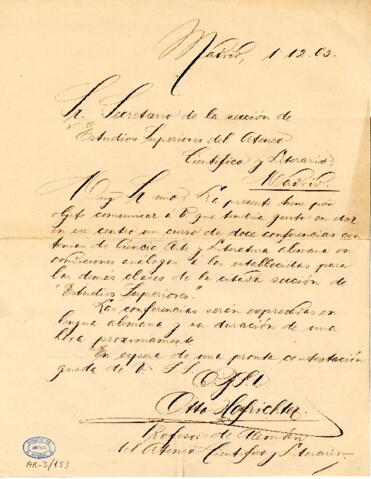 Madrid, 1.12.03.
Sr. Secretario de la sección de
Estudios Superiores del Ateneo
Científico y Literario,
Madrid.
Muy Sr. mio: La presente tiene por
objeto comunicar á V. que tendria gusto en dar
en ese centro un curso de doce conferencias con
temas de Ciencia Arte y Literatura alemana en
condiciones analogas a las establecidas para
las demás clases de la citada sección de
"Estudios Superiores".
Las conferencias serán expresadas en
lengua alemana y su duración de una
hora proximamente.
En espera de una pronta contestación
queda de V. S. S.
Otto Hofrichter.
Profesor de Alemán
del Ateneo Científico y Literario.
AR-3/153